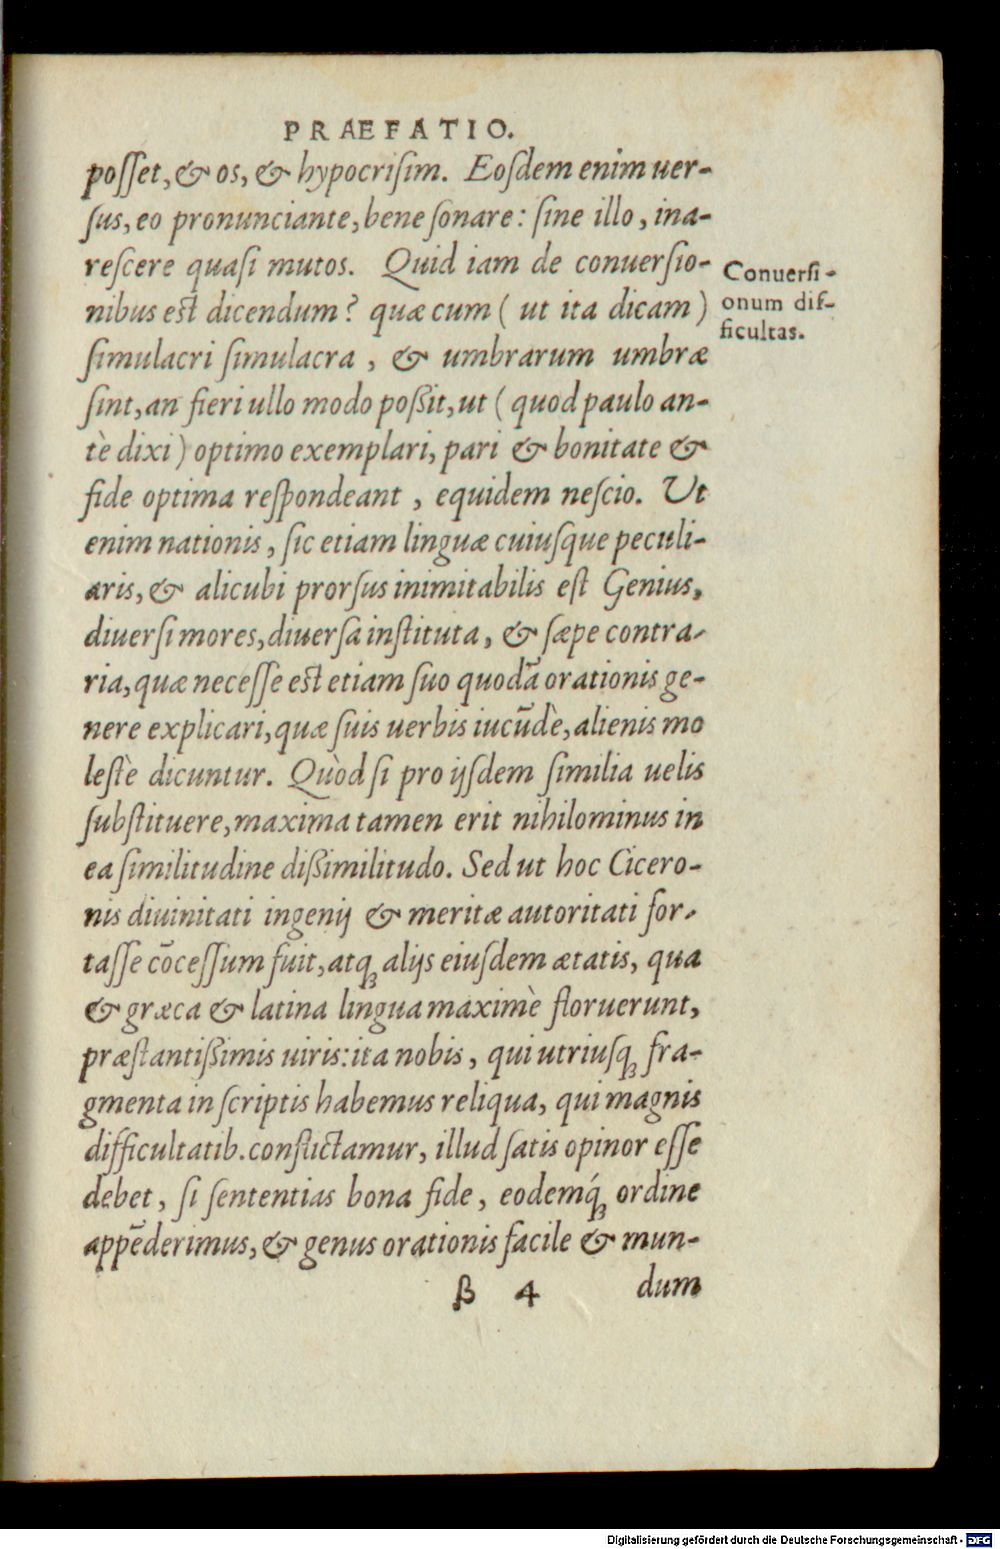 PRAEFATIO.
posset, & os, & hypocrisim. Eosdem enim uer-
sus, eo pronunciante, bene sonare: sine illo, ina-
rescere quasi mutos. Quid iam de conuersio-
nibus est dicendum? quæ cum ( ut ita dicam )
simulacri simulacra , & umbrarum umbræ
sint, an fieri ullo modo poßit, ut ( quod paulo an-
tè dixi ) optimo exemplari, pari & bonitate &
fide optima respondeant , equidem nescio. Ut
enim nationis, sic etiam linguæ cuiusque peculi-
aris, & alicubi prorsus inimitabilis est Genius,
diuersi mores, diuersa instituta, & sæpe contra-
ria, quæ necesse est etiam suo quodã orationis ge-
nere explicari, quæ suis uerbis iucũdè, alienis mo
lestè dicuntur. Quòd si pro ijsdem similia uelis
substituere, maxima tamen erit nihilominus in
ea similitudine dißimilitudo. Sed ut hoc Cicero-
nis diuinitati ingenij & meritæ autoritati for-
tasse cõcessum fuit, atq; alijs eiusdem ætatis, qua
& græca & latina lingua maximè floruerunt,
præstantißimis uiris: ita nobis, qui utriusq; fra-
gmenta in scriptis habemus reliqua, qui magnis
difficultatib. conflictamur, illud satis opinor esse
debet, si sententias bona fide, eodemq́; ordine
appẽderimus, & genus orationis facile & mun-
β 4 dum
Conuersi-
onum dif-
ficultas.
Digitalisierung gefördert durch die Deutsche Forschungsgemeinschaft - DFG